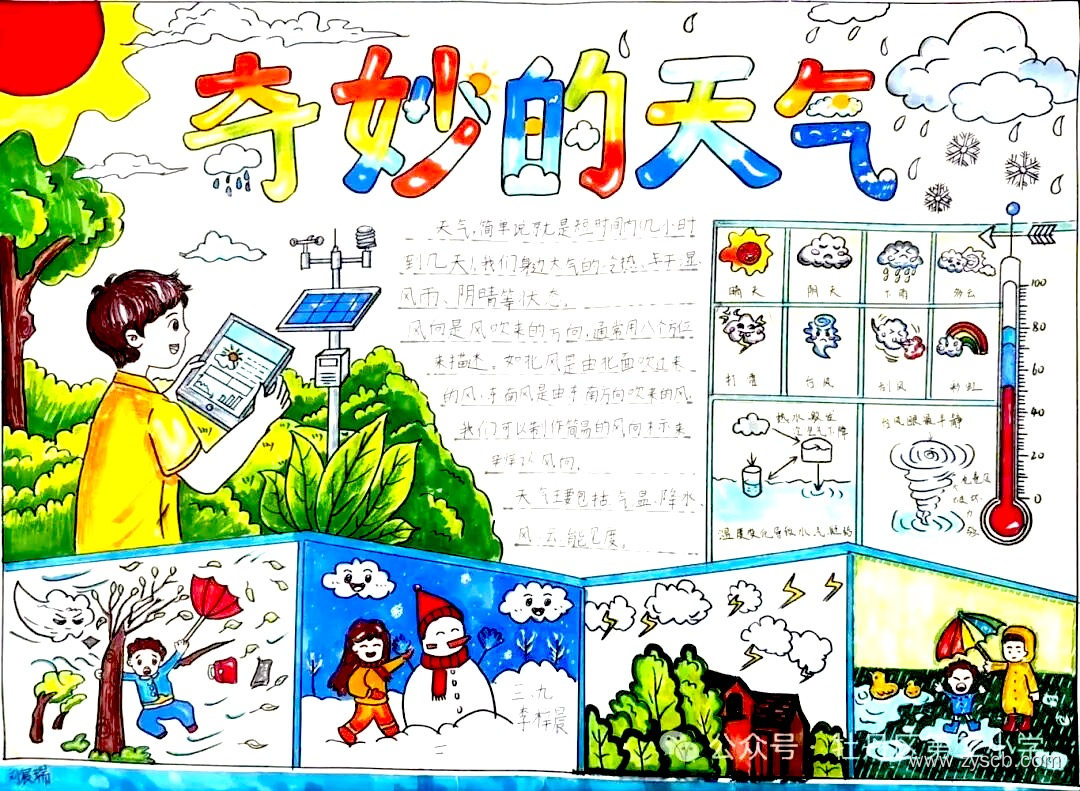 奇妙的天气
天气,简单说就是短时间内(几小时
到几天),我们身边大气的冷热、干湿、
风雨、阴晴等状态。
风向是风吹来的方向,通常用八个方位
来描述。如北风是由北面吹过来
的风,东南风是由东南方向吹来的风。
我们可以制作简易的风向标来
风向。
天气主要包括气温、降水、
风、云、能见度。
晴天 阴天 下雨 多云
打雷 台风 刮风 彩虹
热水
下降
温度变化导致水
台风眼最平静
100
80
60
40
20
0
三.九
李梓晨
公众号
小学
www.zyscb.com